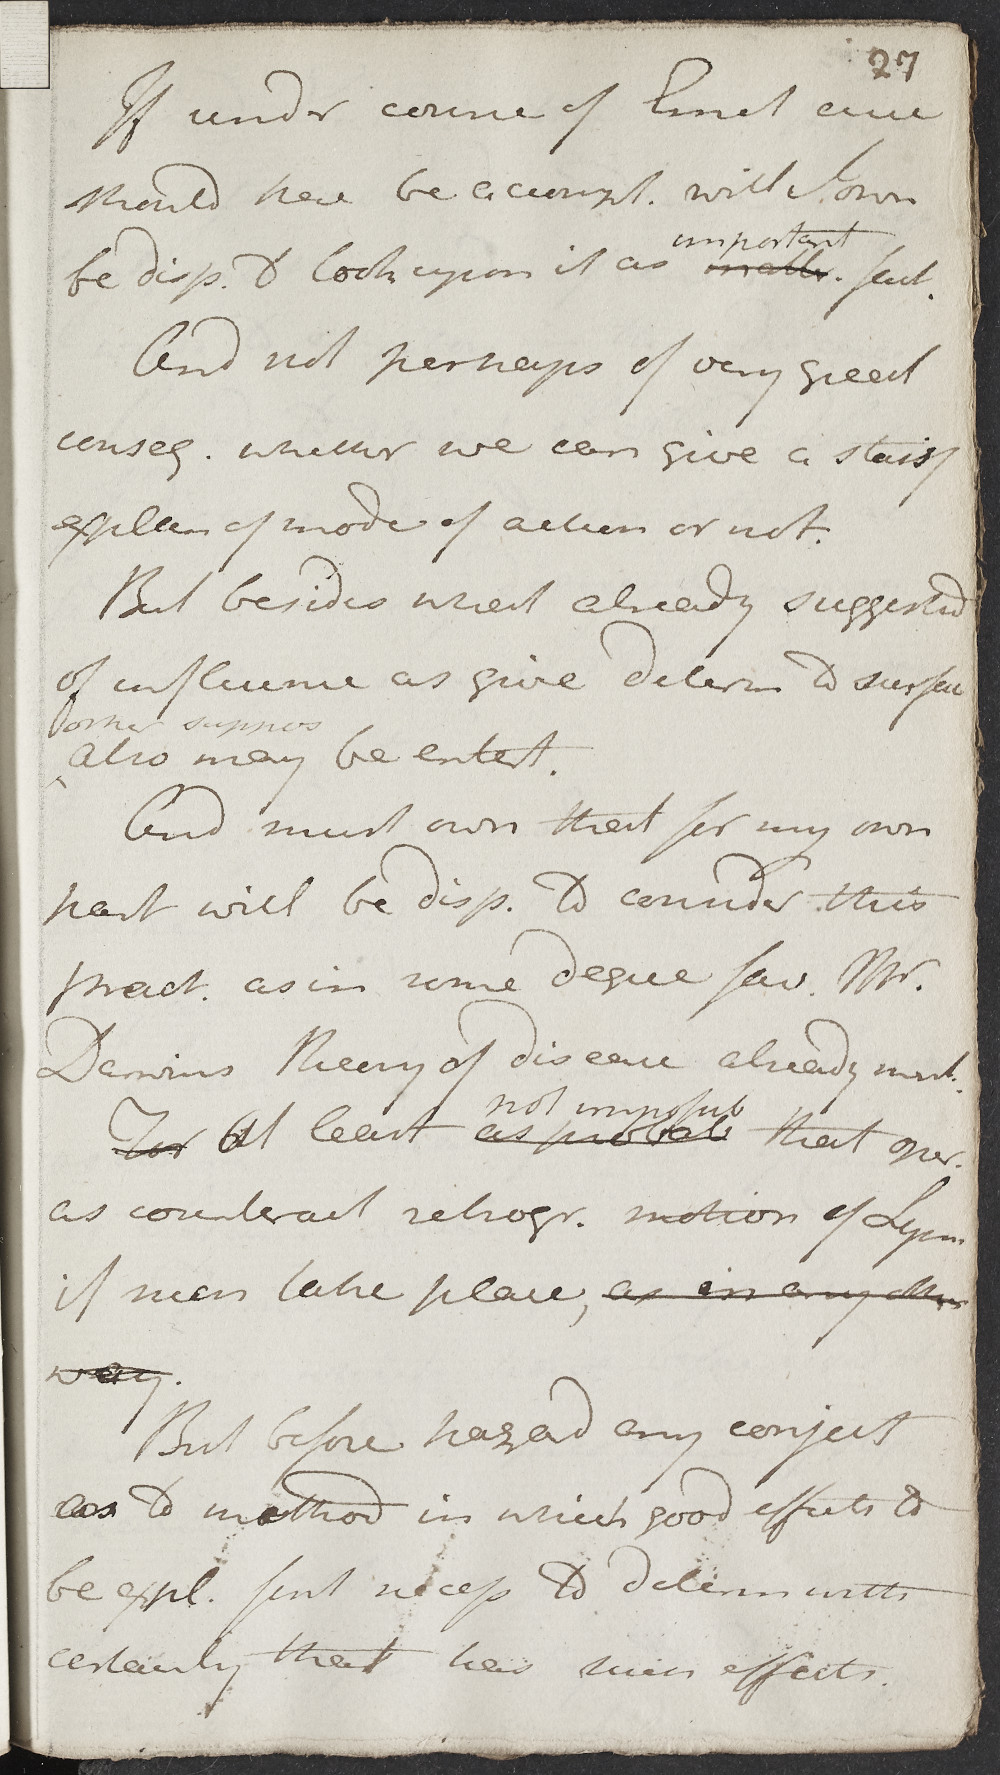 27
If under course of Emet cure
should here be accompl. will I own
be disp. to look upon it as important fact.
And not perhaps of very great
conseq. whether we can give a satisf
explan of mode of action or not.
But besides what already suggested
of influence as give determ to surface
other suppos
also may be entert.
And must own that for my own
part will be disp. to consider this
pract. as in some degree fav. Mr.
Darwins Theory of disease already ment.
not impossib
For At least as probab that oper.
as counteract retrogr. motion of Lym
if such take place, as in any other
way.
But before hazard any conject
as to method in which good effects to
be expl. first necess to determ with
certainty that has such effects.